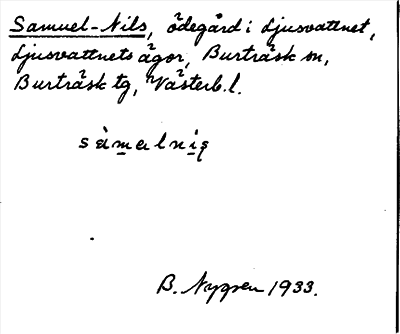 Samuel-Nils, ödegård i Ljusvattnet,
Ljusvattnets ägor, Burträsk sn,
Burträsk tg, Västerb. l.
sàmalniş
B. Nygren 1933.